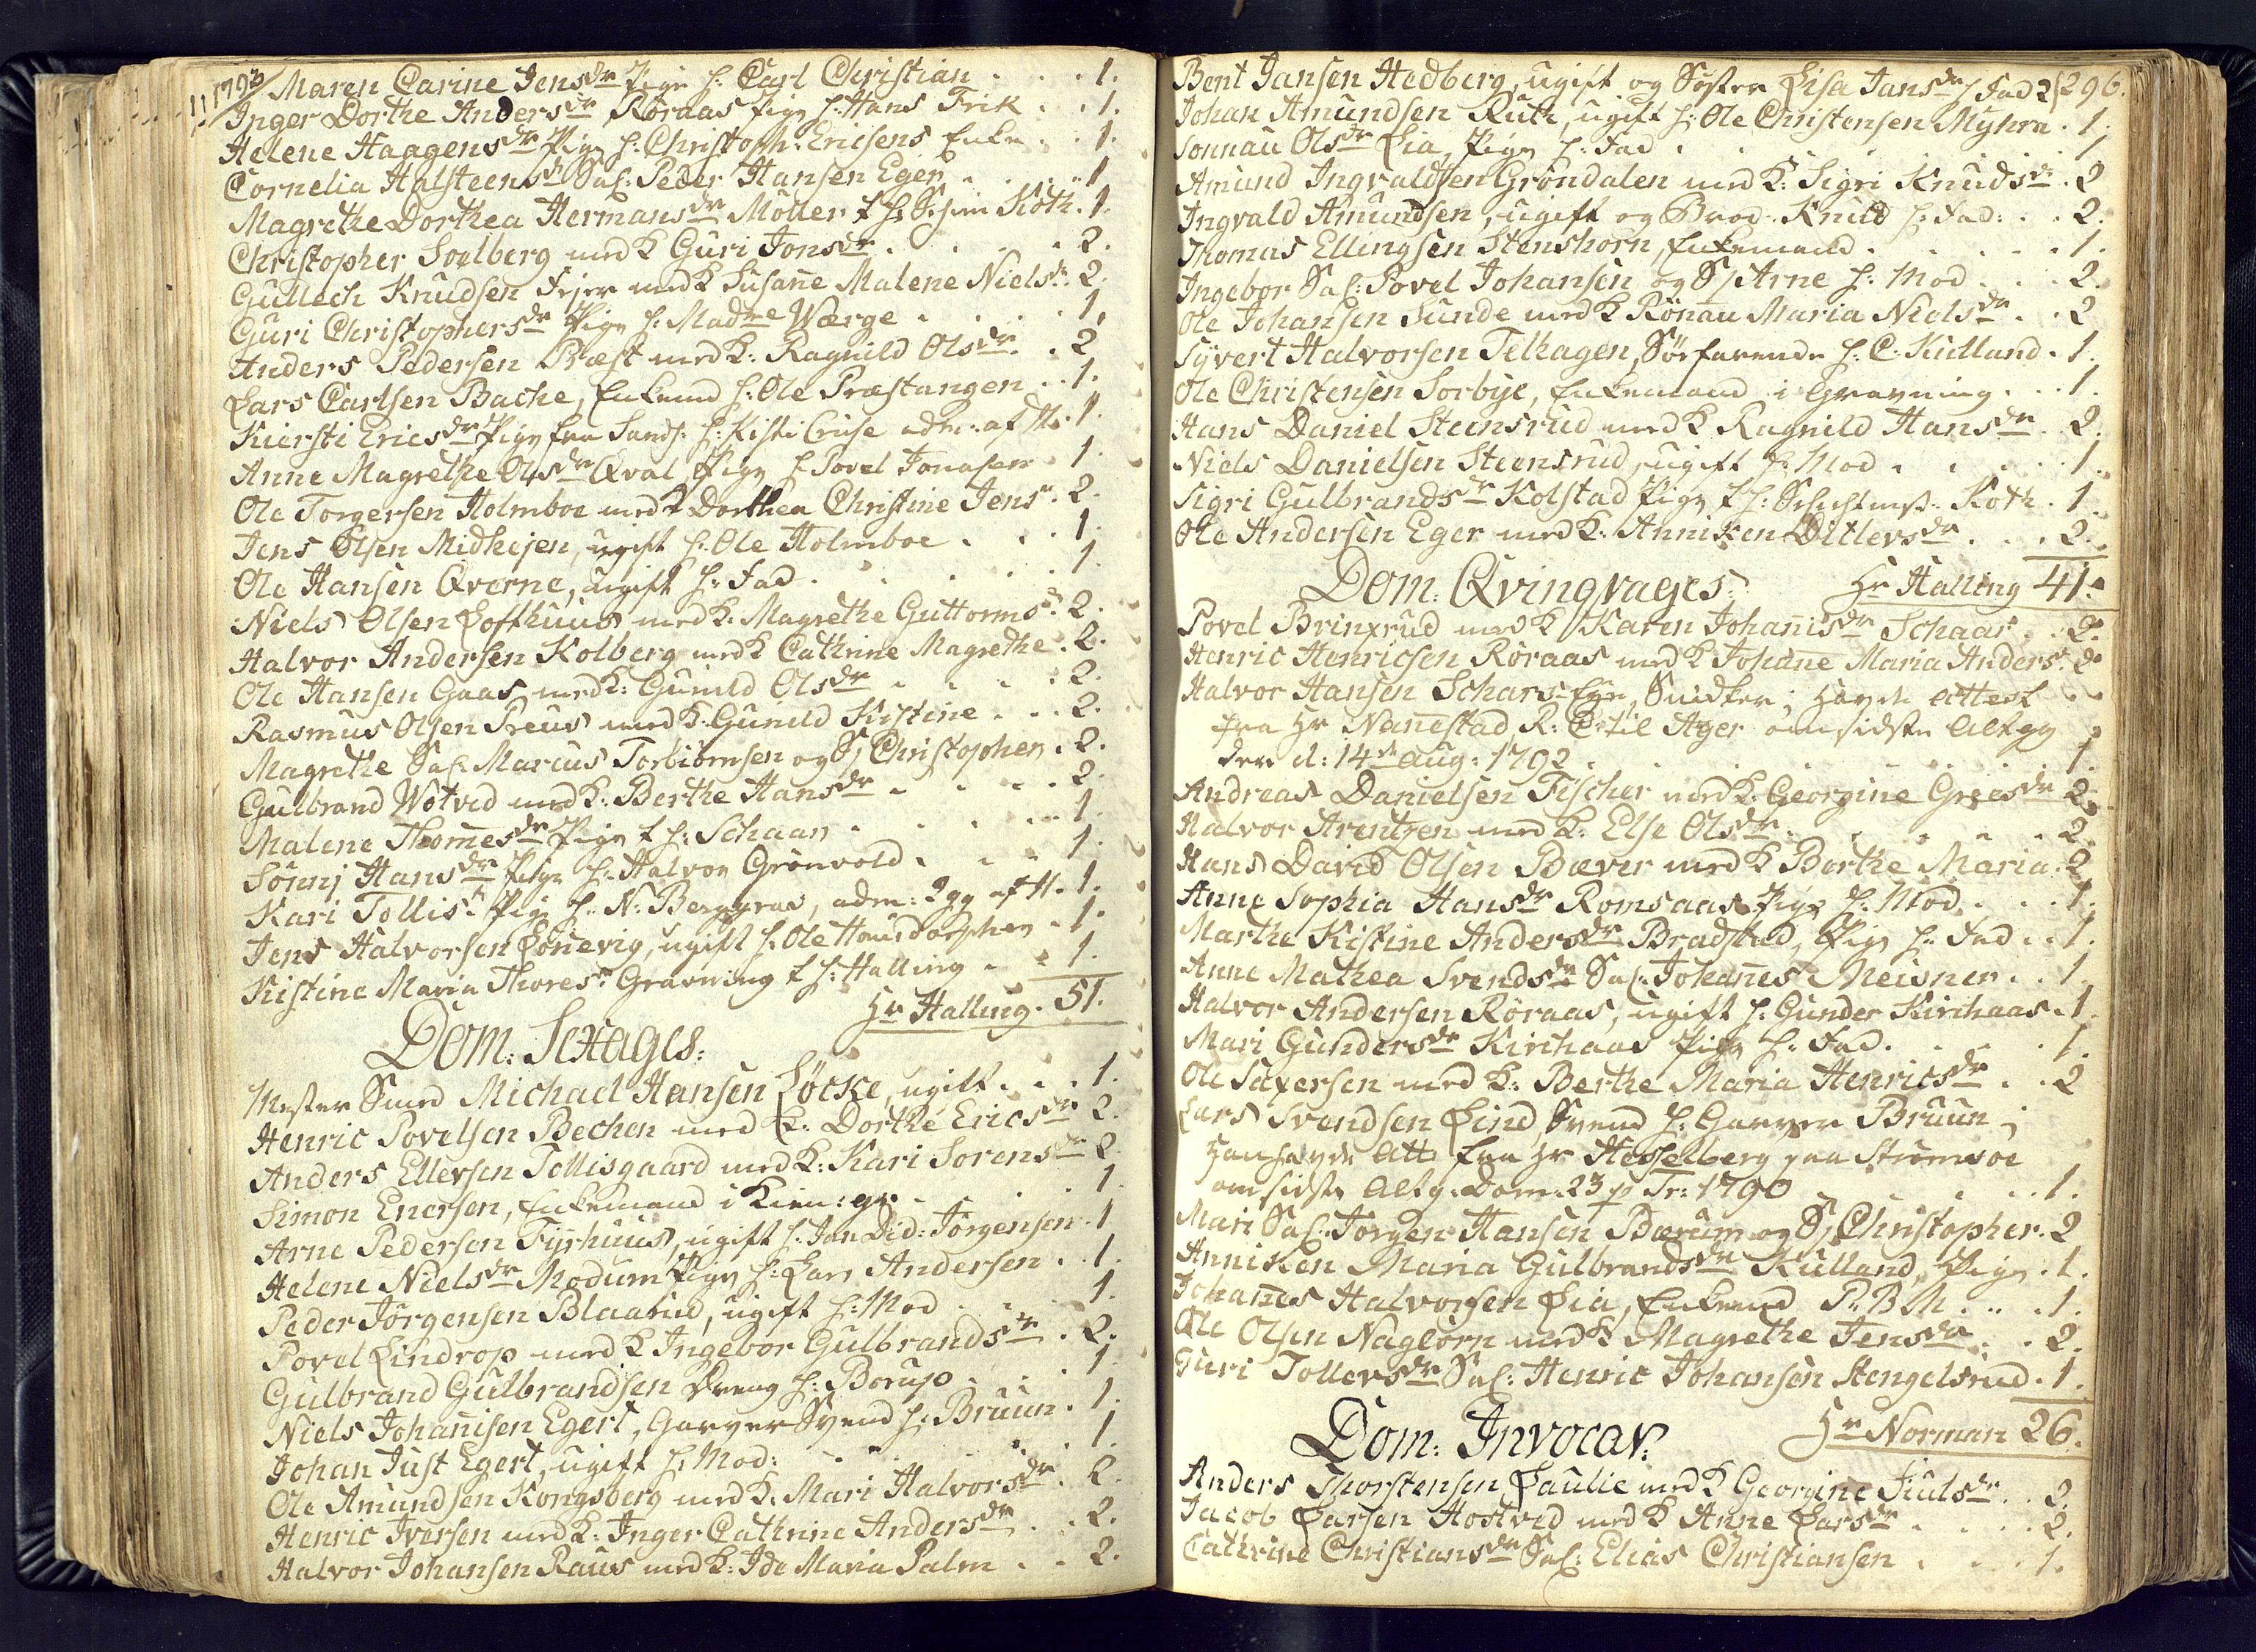 1793
Maren Carine Jensdr Pige h: Carl Christian . . . 1.
Inger Dorthe Andersdr Röraas Pige h: Hans Frik . . 1.
Helene Haagensdr Pige h: Christoph: Ericsens Enke . . 1.
Cornelia Halsteensdr Sal: Peder Hansen Eger . . . 1
Magrethe Dorthea Hermansdr Möller t h: Koth. 1.
Christopher Soelberg med K Guri Jonsdr . . . . 2.
Gullech Knudsen Fejer med K Susan̅e Malene Nielsdr. 2.
Guri Christophersdr Pige h: Madme Wærge . . . . 1.
Anders Pedersen Præst med K: Ragnild Olsdr . . 2
Lars Carlsen Bache, Enkemd h: Ole Præstangen . . 1.
Kiersti Ericsdr Pige fra Sands: h: Kisti Cruse adm: af H. 1.
Anne Magrethe Olsdr Qval Pige h Povel Jonasen . 1.
Ole Torgersen Holmboe med K Dorthea Christine Jensdr. 2.
Jens Olsen Midhejen, ugift h: Ole Holmboe . . . 1.
Ole Hansen Qverne, ugift h: Fad . . . . . 1.
Niels Olsen Lofthuus med K. Magrethe Guttormsdr. 2.
Halvor Andersen Kolberg med K Cathrine Magrethe. 2.
Ole Hansen Gaas med K: Gunild Olsdr . . . . 2.
Rasmus Olsen Preus med K. Gunild Kistine . . . 2.
Magrethe Sal: Marcus Torbiörnsen og S/ Christopher . 2.
Gulbrand Wotved med K: Berthe Hansdr . . . . 2.
Malene Thom̅esdr Pige t h: Schaan . . . . . 1.
Sönnj Hansdr Pige h: Halvor Grönvold . . . . 1.
Kari Tollisdr Pige h: N: Berggrav, adm: 2gg af H. 1.
Jens Halvorsen Lönevig, ugift h: Ole Hausdorphen . 1.
Kistine Maria Thoresdr Gravning t h: Halling . . 1.
Hr Halling. 51.
Dom: Sexages:
Mester Smed Michael Hansen Löcke, ugift . . . 1.
Henric Povelsen Bechen med K: Dorthe Ericsdr 2.
Anders Ellevsen Tollisgaard med K: Kari Sorensdr 2.
Simon Enersen, Enkemand i Kien: gr. . . . . 1.
Arne Pedersen Fyrhuus, ugift h: Jan Did: Jörgensen . 1
Helene Nielsdr Modum Pige h: Lars Andersen . . 1.
Peder Jörgensen Blaarud, ugift h: Mod . . . . 1.
Povel Lindrop med K Ingebor Gulbrandsdr . 2.
Gulbrand Gulbrandsen Dreng h: Borup . . . 1.
Niels Johan̅isen Egert, Garver Svend h: Bruun . 1.
Johan Just Egert, ugift h: Mod: . . . . . 1.
Ole Amundsen Kongsberg med K. Mari Halvorsdr . 2.
Henric Iversen med K: Inger Cathrine Andersdr . . 2.
Halvor Johansen Raus med K: Ide Maria Palm . . 2.
Bent Jansen Hedberg, ugift og Söster Lisa Jansdr / Fad 2 296.
Johan Amundsen Ruth, ugift h: Ole Christensen Myhra . 1.
Sonnau Olsdr Lia, Pige h: Fad . . . . . . 1
Amund Ingvaldsen Gröndalen med K: Sigri Knudsdr. 2
Ingvald Amundsen, ugift og Brod: Knud h: Fad: . . 2.
Thomas Ellingsen Stenshorn, Enkemand . . . . . 1.
Ingebor Sal: Povel Johansen og S/ Arne h: Mod . . . 2.
Ole Johansen Sunde med K Rönau Maria Nielsdr . . 2
Syvert Halvorsen Telhagen, Söefarende h: C: Kulland . 1.
Ole Christensen Sorbye, Enkemand i Gravning . . . 1.
Hans Daniel Steensrud med K Ragnild Hansdr . 2.
Niels Danielsen Steensrud, ugift h: Mod . . . . . 1.
Sigri Gulbrandsdr Kolstad Pige t h: Koth . 1.
Ole Andersen Eger med K: Anniken Ditlevsdr . . . 2.
Dom: Qvinqvages: Hr Halling 41.
Povel Brinxrud med K Karen Johan̅isdr Schaar . . 2.
Henric Henricsen Röraas med K Johan̅e Maria Andersdr. 2
Halvor Hansen Schars-Eje, Snidker; havde Attest
fra Hr Nan̅estad R: C: til Ager om sidste Altgg
der d: 14de Aug: 1792 . . . . . . . . 1.
Andreas Danielsen Fischer med K: Georgine Greesdr 2.
Halvor Arentzen med K: Else Olsdr . . . . . 2.
Hans David Olsen Bæver med K Berthe Maria. 2
Anne Sophia Hansdr Romsaas Pige h: Mod . . . 1.
Marthe Kistine Andersdr Bradstad, Pige h: Fad . . 1.
Anne Mathea Svendsdr Sal: Johan̅es Meisner . . 1.
Halvor Andersen Röraas, ugift h: Gunder Kirchaas . 1.
Mari Gundersdr Kirchaas Pige h: Fad . . . . 1.
Ole Saxersen med K: Berthe Maria Henricsdr . . 2
Lars Svendsen Lind, Svend h: Garver Bruun;
Han havde Att: fra Hr Hesselberg paa Strömsoe
om sidste Altg: Dom. 23 p Tr: 1790 . . . . 1.
Mari Sal: Jörgen Hansen Bærum og S/ Christopher. 2
Anniken Maria Gulbrandsdr Kulland, Pige . 1.
Johan̅es Halvorsen Lia, Enkemd P. B M . . . 1.
Ole Olsen Naglörn med K Magrethe Jensdr . . 2.
Guri Tollevsdr Sal: Henric Johansen Hengelsrud . 1.
Dom: Invocav: Hr Norman 26.
Anders Thorstensen Paulie med K Georgine Juulsdr . . 2.
Jacob Larsen Hostved med K Anne Larsdr . . . . 2.
Cathrine Christiansdr Sal: Elias Christiansen . . . 1.